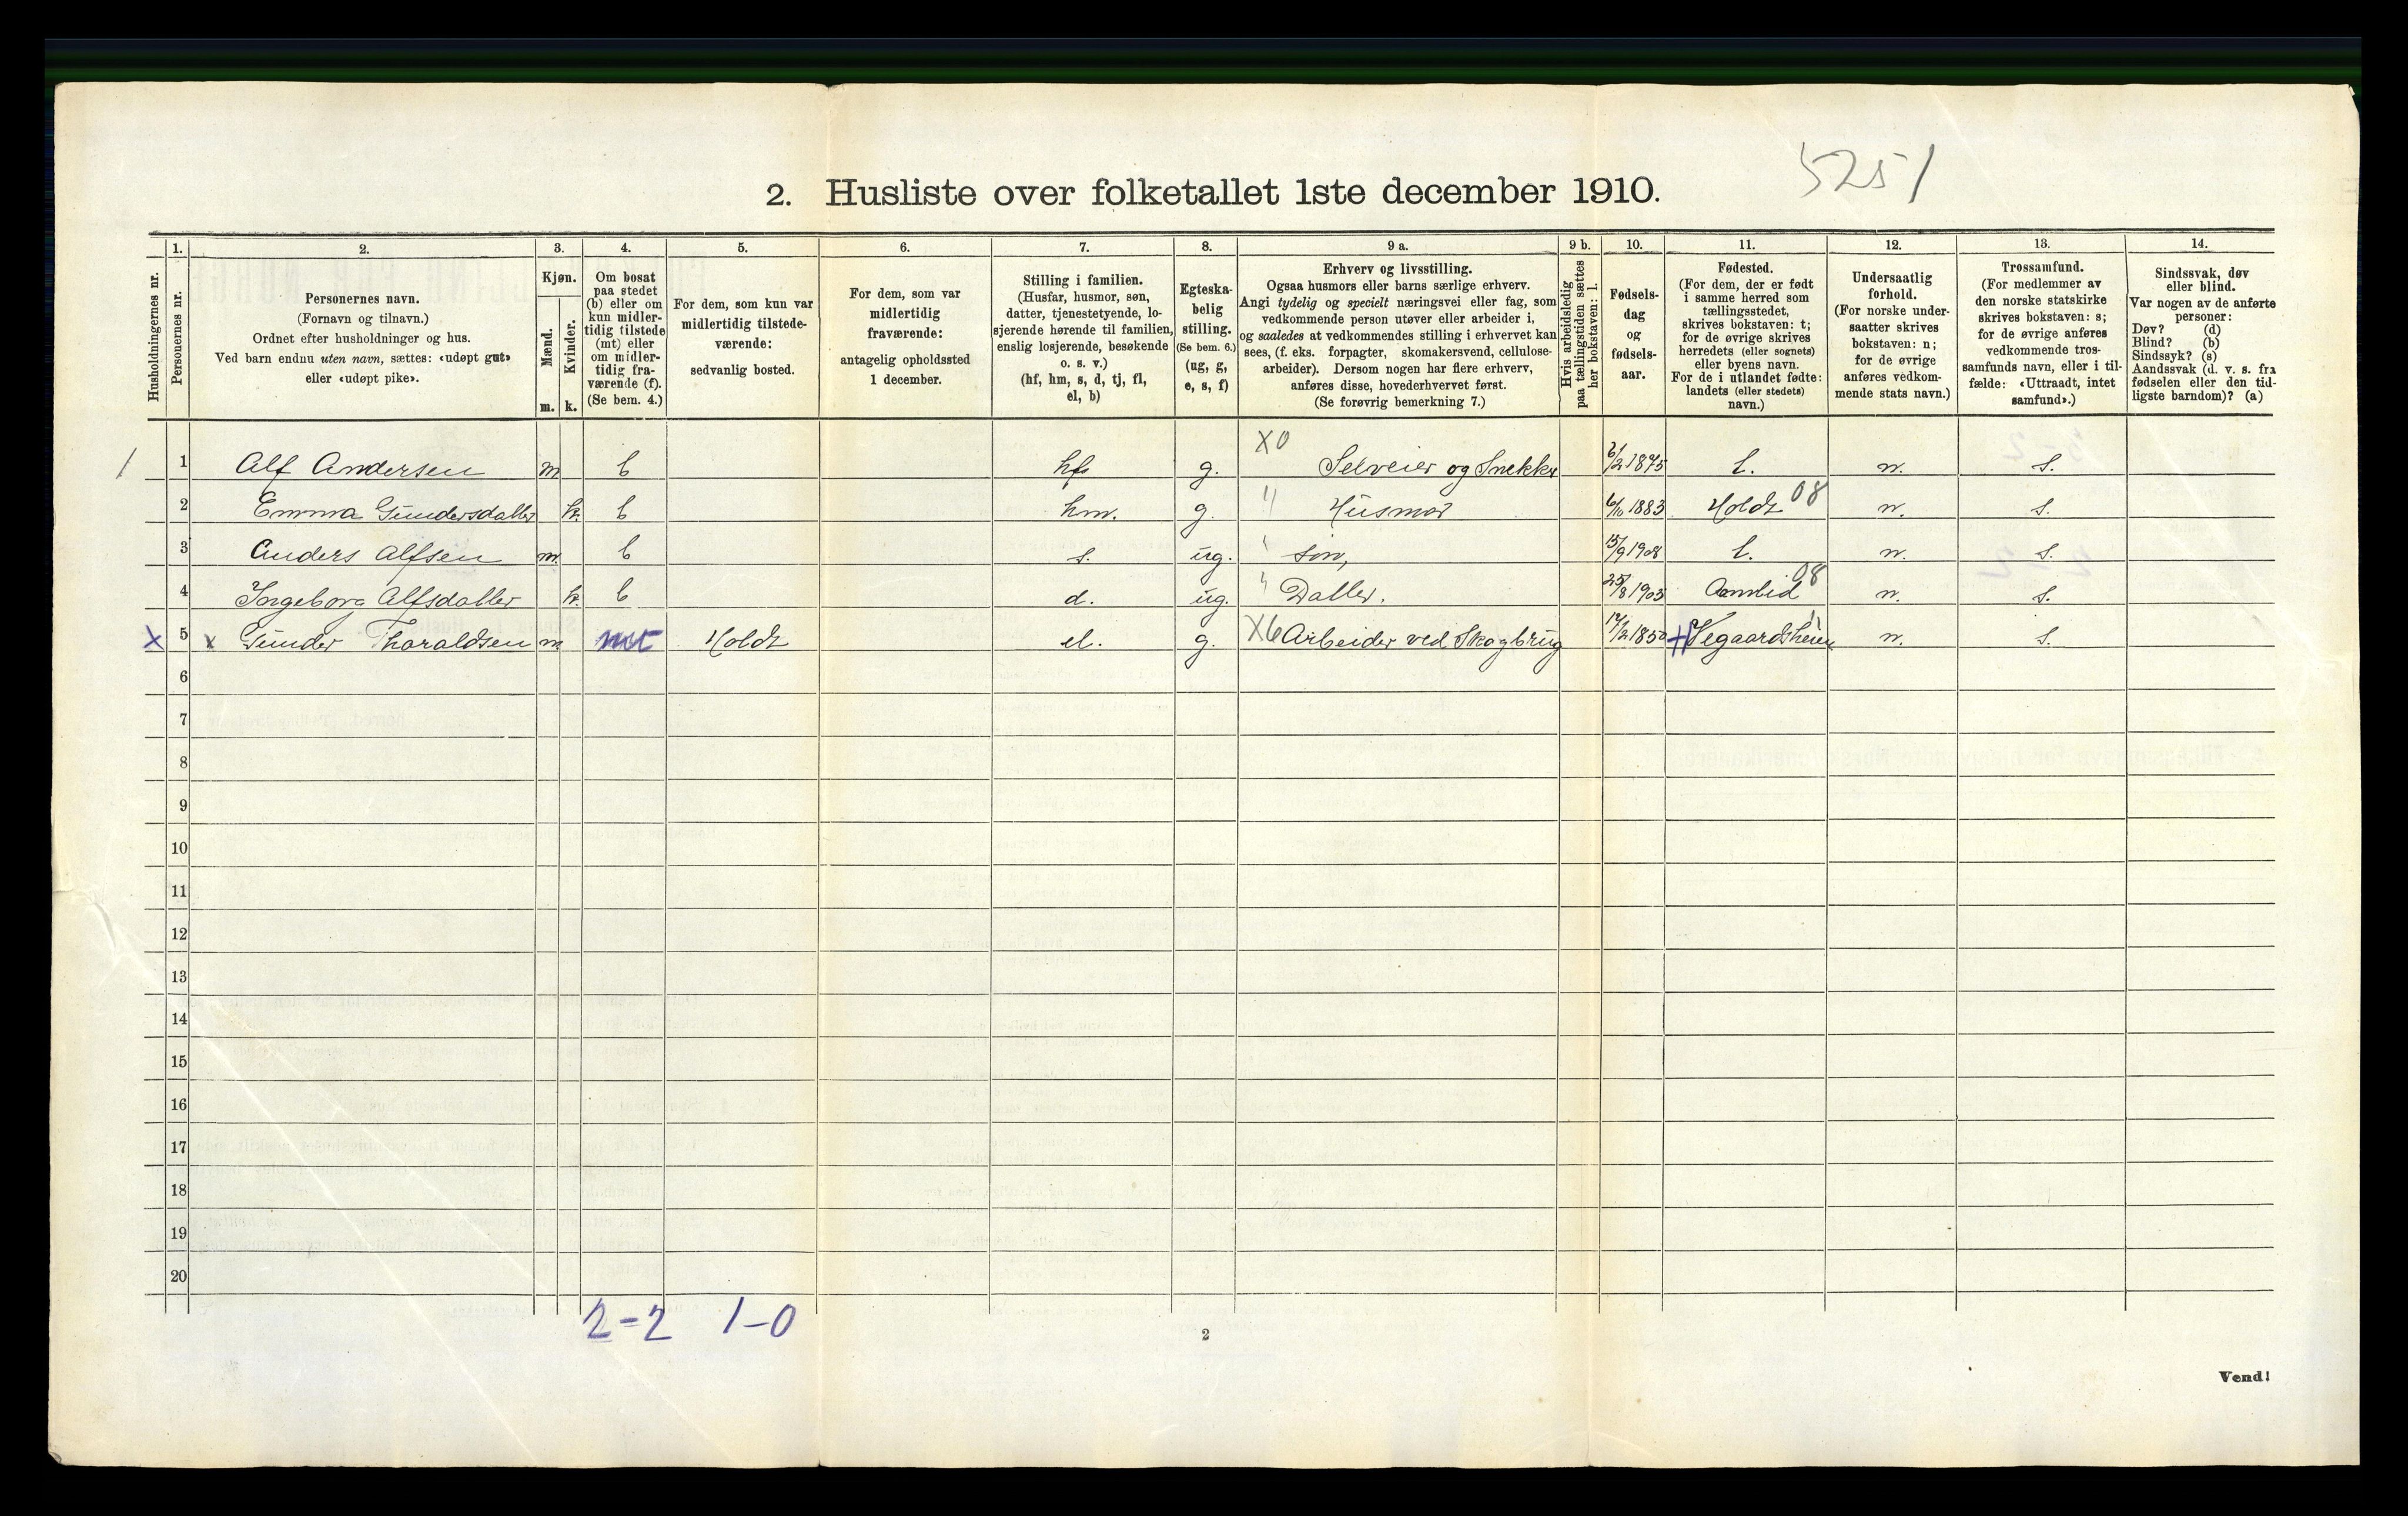 5251
2. Husliste over folketallet 1ste december 1910.
Husholdningernes nr.
1.
Personernes nr.
2.
Personernes navn.
(Fornavn og tilnavn.)
Ordnet efter husholdninger og hus.
Ved barn endnu uten navn, sættes: «udøpt gut»
eller «udøpt pike».
3.
Kjøn.
Mænd.
Kvinder.
m. k.
4.
Om bosat
paa stedet
(b) eller om
kun midler-
tidig tilstede
(mt) eller
om midler-
tidig fra-
værende (f).
(Se bem. 4.)
5.
For dem, som kun var
midlertidig tilstede-
værende:
sedvanlig bosted.
6.
For dem, som var
midlertidig
fraværende:
antagelig opholdssted
1 december.
7.
Stilling i familien.
(Husfar, husmor, søn,
datter, tjenestetyende, lo-
sjerende hørende til familien,
enslig losjerende, besøkende
o. s. v.)
(hf, hm, s, d, tj, fl,
el, b)
8.
Egteska-
belig
stilling.
(Se bem. 6.)
(ug, g,
e, s, f)
9 a.
Erhverv og livsstilling.
Ogsaa husmors eller barns særlige erhverv.
Angi tydelig og specielt næringsvei eller fag, som
vedkommende person utøver eller arbeider i,
og saaledes at vedkommendes stilling i erhvervet kan
sees, (f. eks. forpagter, skomakersvend, cellulose-
arbeider). Dersom nogen har flere erhverv,
anføres disse, hovederhvervet først.
(Se forøvrig bemerkning 7.)
9 b.
Hvis arbeidsledig
paa tællingstiden sættes
her bokstaven: l.
10.
Fødsels-
dag
og
fødsels-
aar.
11.
Fødested.
(For dem, der er født
i samme herred som
tællingsstedet,
skrives bokstaven: t;
for de øvrige skrives
herredets (eller sognets)
eller byens navn.
For de i utlandet fødte:
landets (eller stedets)
navn.)
12.
Undersaatlig
forhold.
(For norske under-
saatter skrives
bokstaven: n;
for de øvrige
anføres vedkom-
mende stats navn.)
13.
Trossamfund.
(For medlemmer av
den norske statskirke
skrives bokstaven: s;
for de øvrige anføres
vedkommende tros-
samfunds navn, eller i til-
fælde: «Uttraadt, intet
samfund».)
14.
Sindssvak, døv
eller blind.
Var nogen av de anførte
personer:
Døv? (d)
Blind? (b)
Sindssyk? (s)
Aandssvak (d. v. s. fra
fødselen eller den tid-
ligste barndom)? (a)
1 1 Alf Andersen m b hf g. X0 Selveier og Snekker 6/2 1875 t. n. s.
2 Emma Gundersdatter k. b hm. g. " Husmor 6/10 1883 Holdt 08 n. s.
3 Anders Alfsen m. b s. ug. " søn, 15/9 1908 t. n. s.
4 Ingeborg Alfsdatter k. b d. ug. " Datter. 25/8 1905 08 n. s.
X 5 x Gunder Tharaldsen m. mt Holdt el. g. X6 Arbeider ved Skogbrug 17/2 1850 + Vegaardsheien n. s.
6
7
8
9
10
11
12
13
14
15
16
17
18
19
20
2=2 1-0
2
Vend!